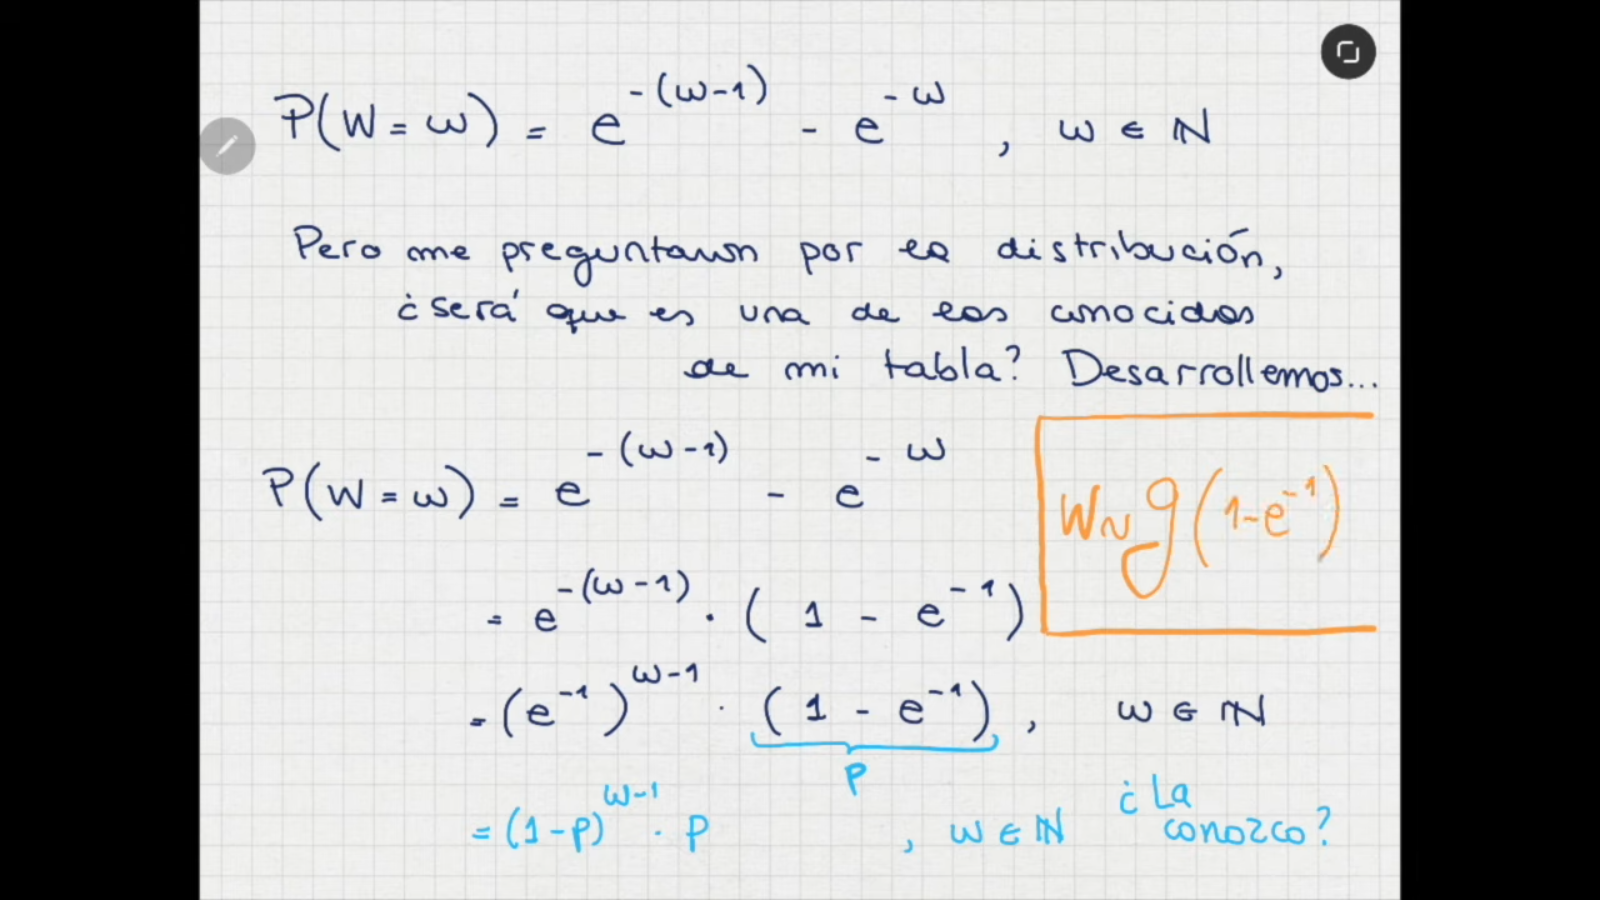 P(W = ω) = e^{-(ω-1)} - e^{-ω} , ω ∈ ℕ
Pero me preguntaron por la distribución,
¿será que es una de las conocidas
de mi tabla? Desarrollemos...
P(W = ω) = e^{-(ω-1)} - e^{-ω}
W ~ g(1-e^{-1})
= e^{-(ω-1)} · (1 - e^{-1})
= (e^{-1})^{ω-1} · (1 - e^{-1}) , ω ∈ ℕ
p
= (1-p)^{ω-1} · p , ω ∈ ℕ
¿La
conozco?